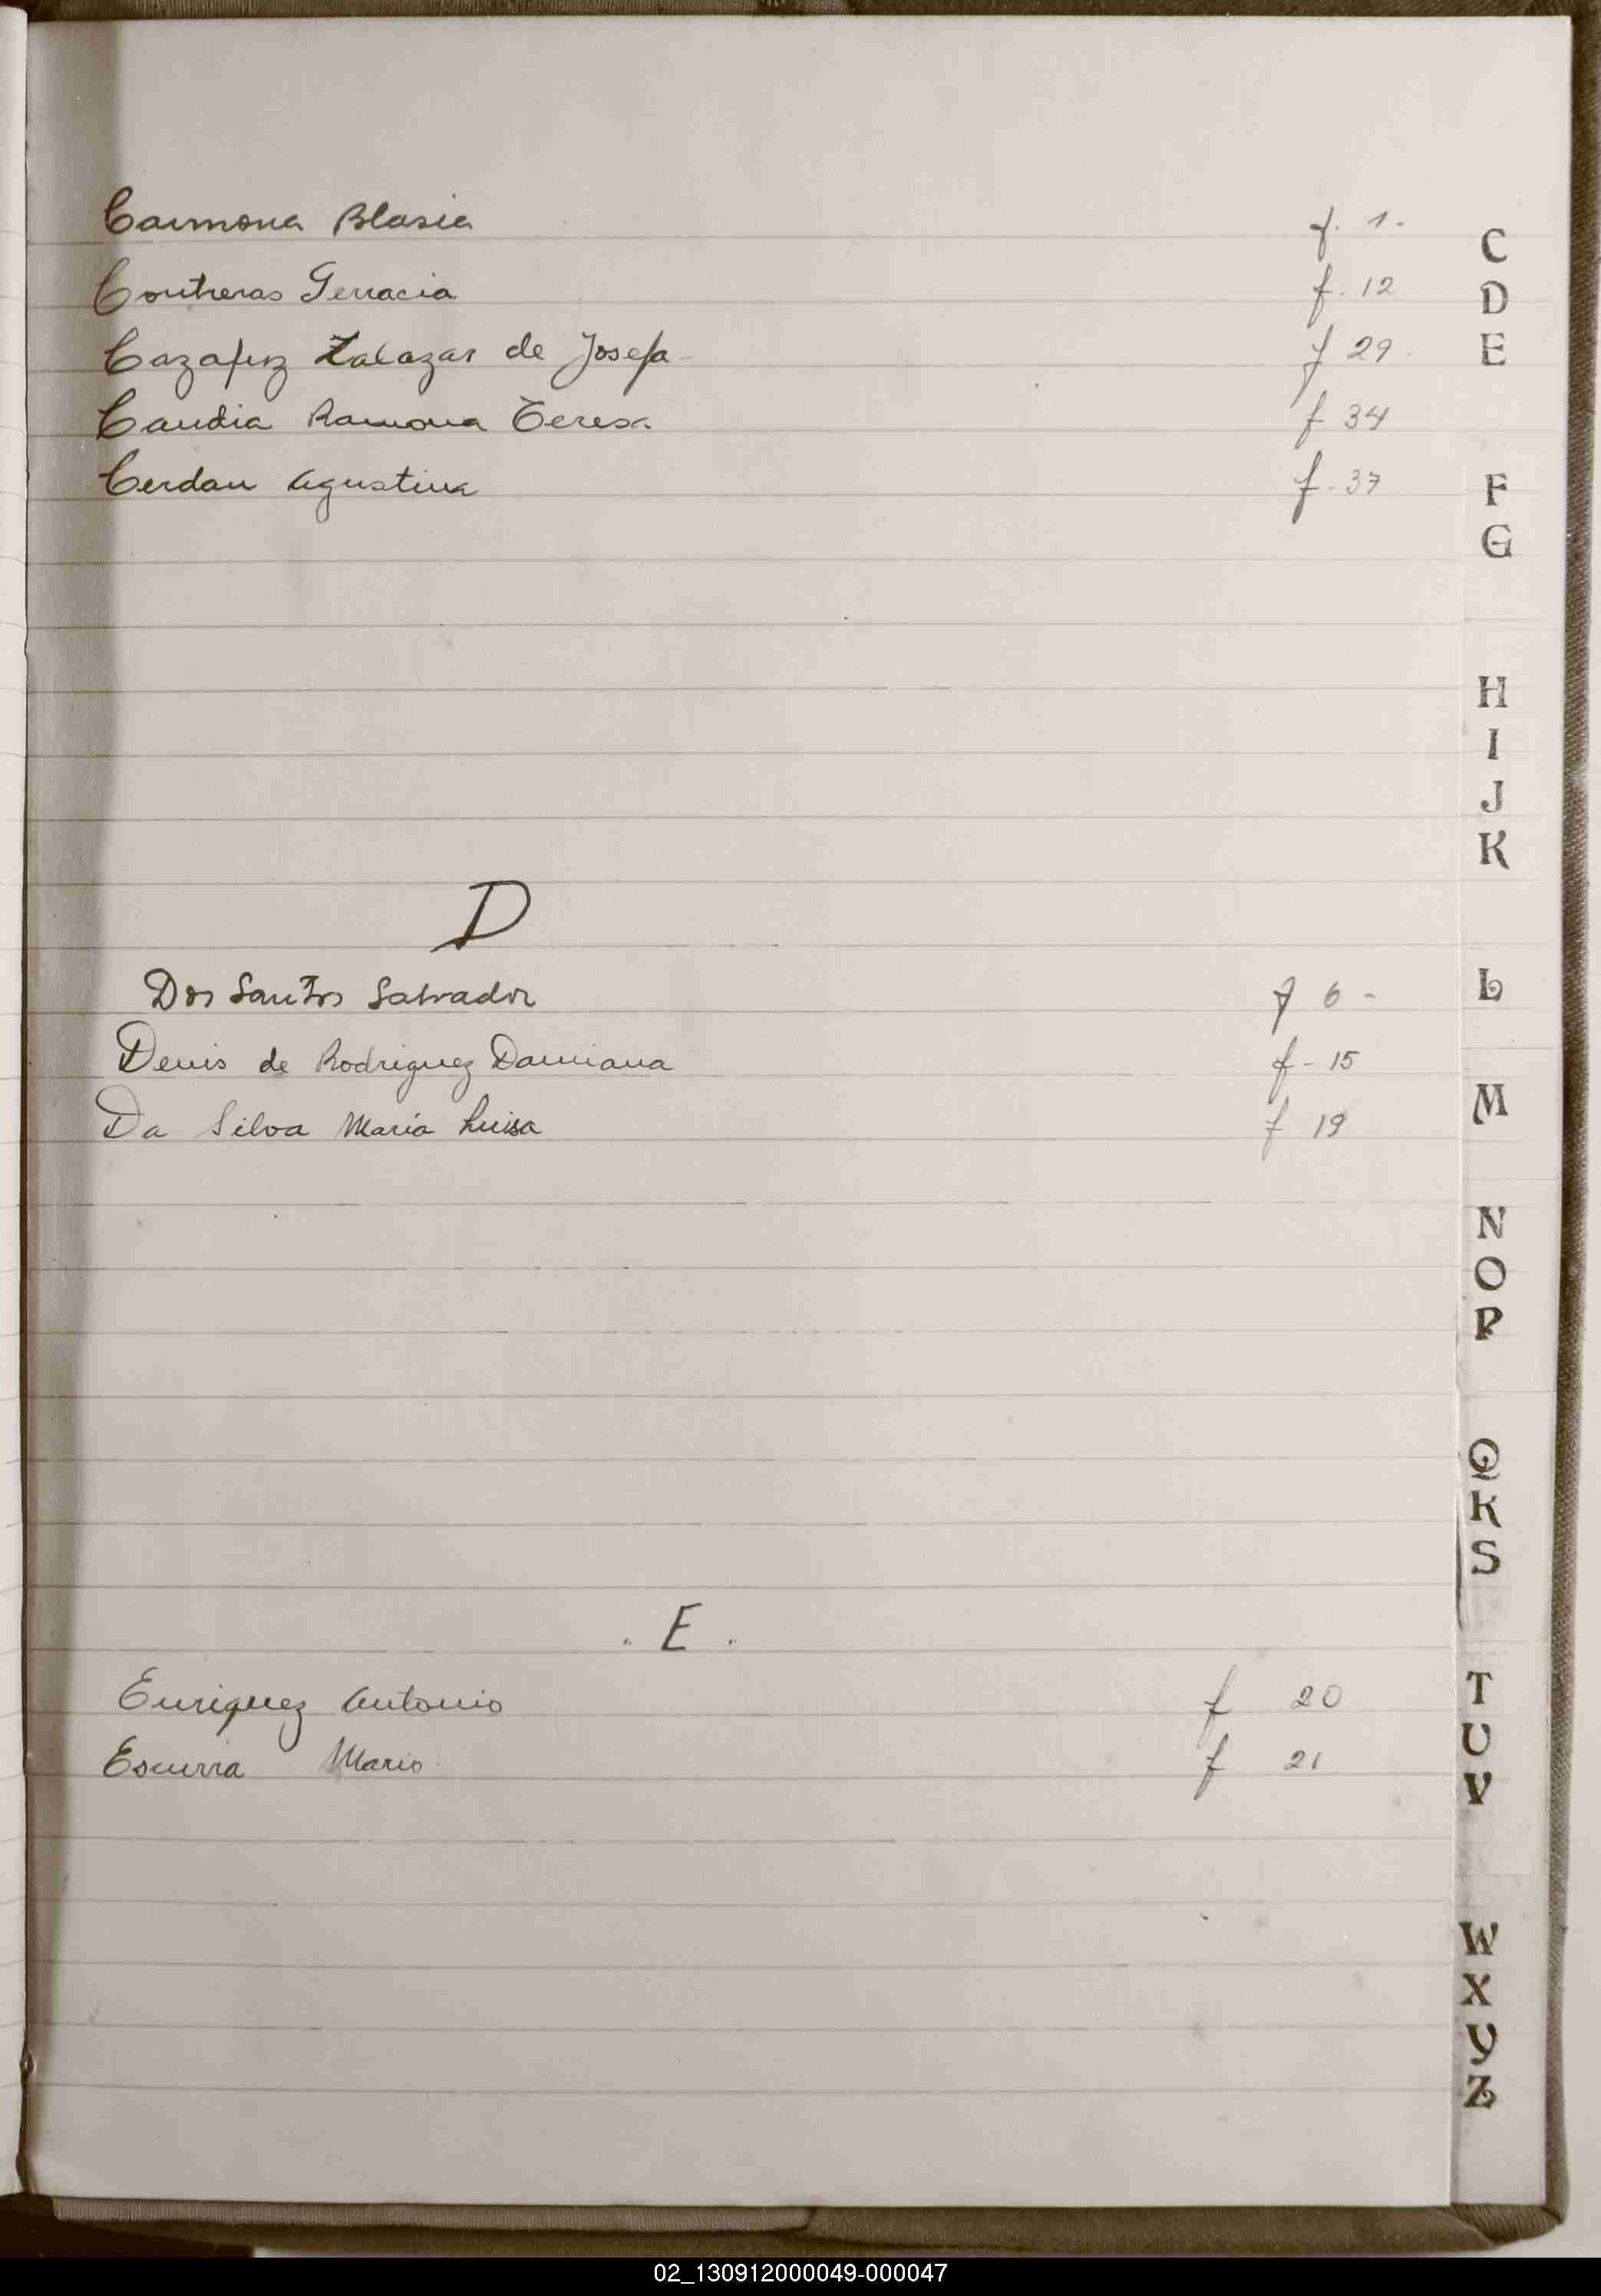 Carmona Blasia f. 1.
Contreras Gervacia f. 12
Zalazar de Josefa f 29
Candia Ramona Teresa f 34
Cerdan Agustina f. 37
D
Dos Santos Salvador f 6 -
Denis de Rodriguez Damiana f - 15
Da Silva María Luisa f 19
. E .
Enriquez Antonio f 20
Escurra Mario f 21
C
D
E
F
G
H
I
J
K
L
M
N
O
P
Q
R
S
T
U
V
W
X
Y
Z
02_130912000049-000047